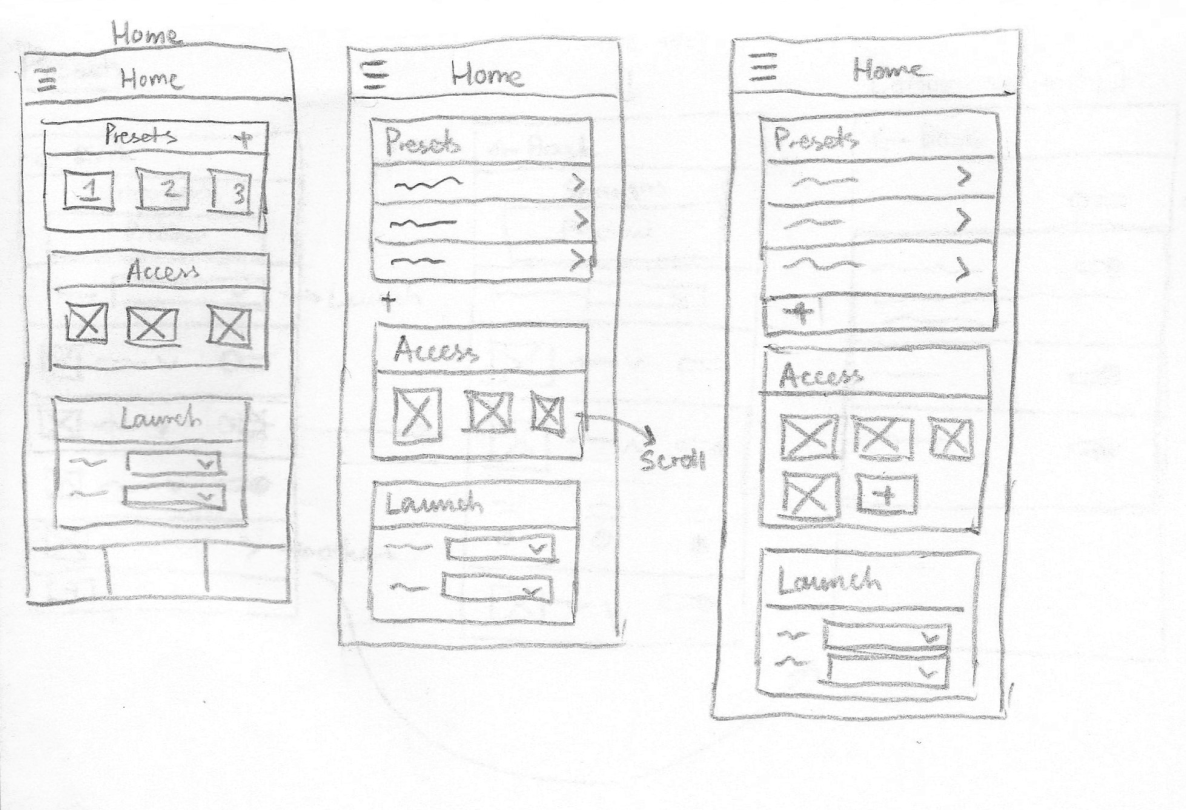 Home
Home
Presets +
1 2 3
Access
Launch
Home
Presets
+
Access
Scroll
Launch
Home
Presets
+
Access
+
Launch